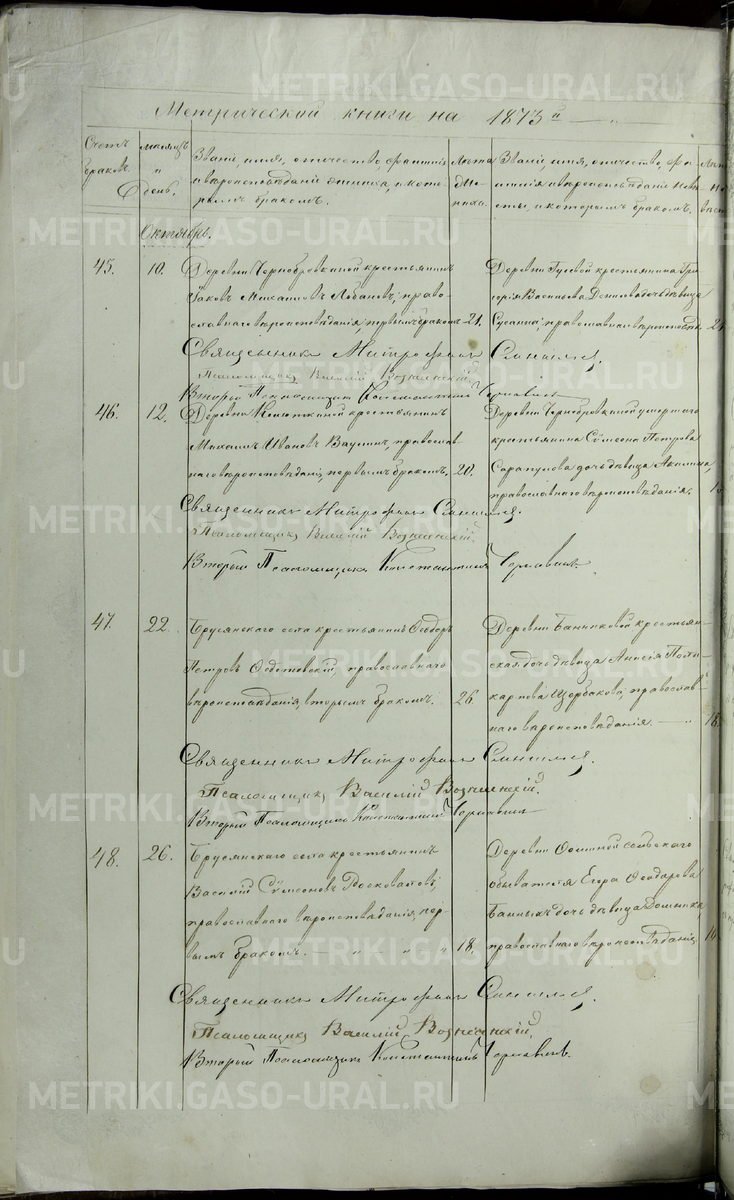 METRIKI.GASO-URAL.RU
Метрической книги на 1873й
Счетъ браковъ.
Мѣсяцъ и день.
Званіе, имя, отчество, фамилія и вѣроисповѣданіе жениха, и которымъ бракомъ.
Лѣта жениха.
Званіе, имя, отчество, фамилія и вѣроисповѣданіе невѣсты, и которымъ бракомъ.
Октябрь.
45. 10.
Деревни Чернобровкиной крестьянинъ
Іаковъ Михаиловъ Лобановъ, право-
славнаго вѣроисповѣданія, первымъ бракомъ 21.
Деревни Гусевой крестьянина Гри-
горія Васильева дочь дѣвица
Сусанна, православнаго вѣроисповѣд.
Священникъ Митрофанъ
Псаломщикъ Василій Вознесенскій
Второй Псаломщикъ Константинъ Чернавинъ
46. 12.
Деревни крестьянинъ
Михаилъ Ивановъ Ваулинъ, православ-
наго вѣроисповѣданія, первымъ бракомъ. 20.
Деревни Чернобровкиной умершаго
крестьянина Сѵмеона Петрова
Сарапулова дочь дѣвица Акилина,
православнаго вѣроисповѣданія.
Священникъ Митрофанъ
Псаломщикъ Василій Вознесенскій.
Второй Псаломщикъ Константинъ Чернавинъ.
47. 22.
Брусянскаго села крестьянинъ Ѳеодоръ
Петровъ православнаго
вѣроисповѣданія, вторымъ бракомъ. 26.
Деревни Банниковой крестьян-
ская дочь дѣвица Анисія Поли-
карпова Щербакова, православ-
наго вѣроисповѣданія. 18.
Священникъ Митрофанъ
Псаломщикъ Василій Вознесенскій.
Второй Псаломщикъ Константинъ Чернавинъ
48. 26.
Брусянскаго села крестьянинъ
Василій Сѵмеоновъ
православнаго вѣроисповѣданія, пер-
вымъ бракомъ. 18.
Деревни сельскаго
обывателя Егора Ѳеодорова
Банныхъ дочь дѣвица Домника,
православнаго вѣроисповѣданія,
Священникъ Митрофанъ
Псаломщикъ Василій Вознесенскій.
Второй Псаломщикъ Константинъ Чернавинъ.